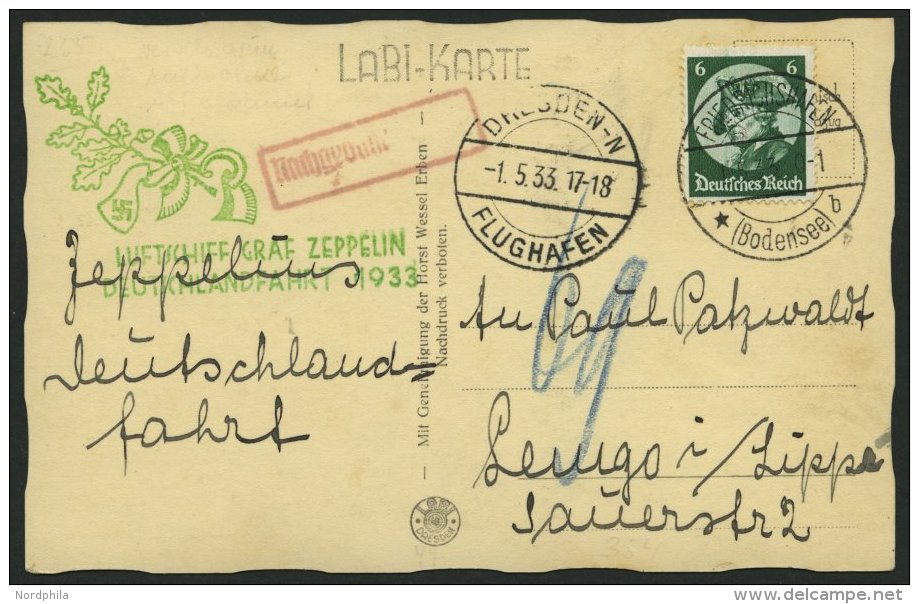 LABI-KARTE
Nachgebühr
LUFTSCHIFF GRAF ZEPPELIN
DEUTSCHLANDFAHRT 1933
Zeppelins
Deutschland=
fahrt
Mit Genehmigung der Horst Wessel Erben
Nachdruck verboten.
DRESDEN-N
-1.5.33.17-18
FLUGHAFEN
6 6
Deutsches Reich
FRIEDRICHSHAFEN
(Bodensee) b
An Paul Patzwaldt
Lemgo i/Lippe
Sauerstr 2
LABI
DRESDEN
Nordphila
delcampe.net